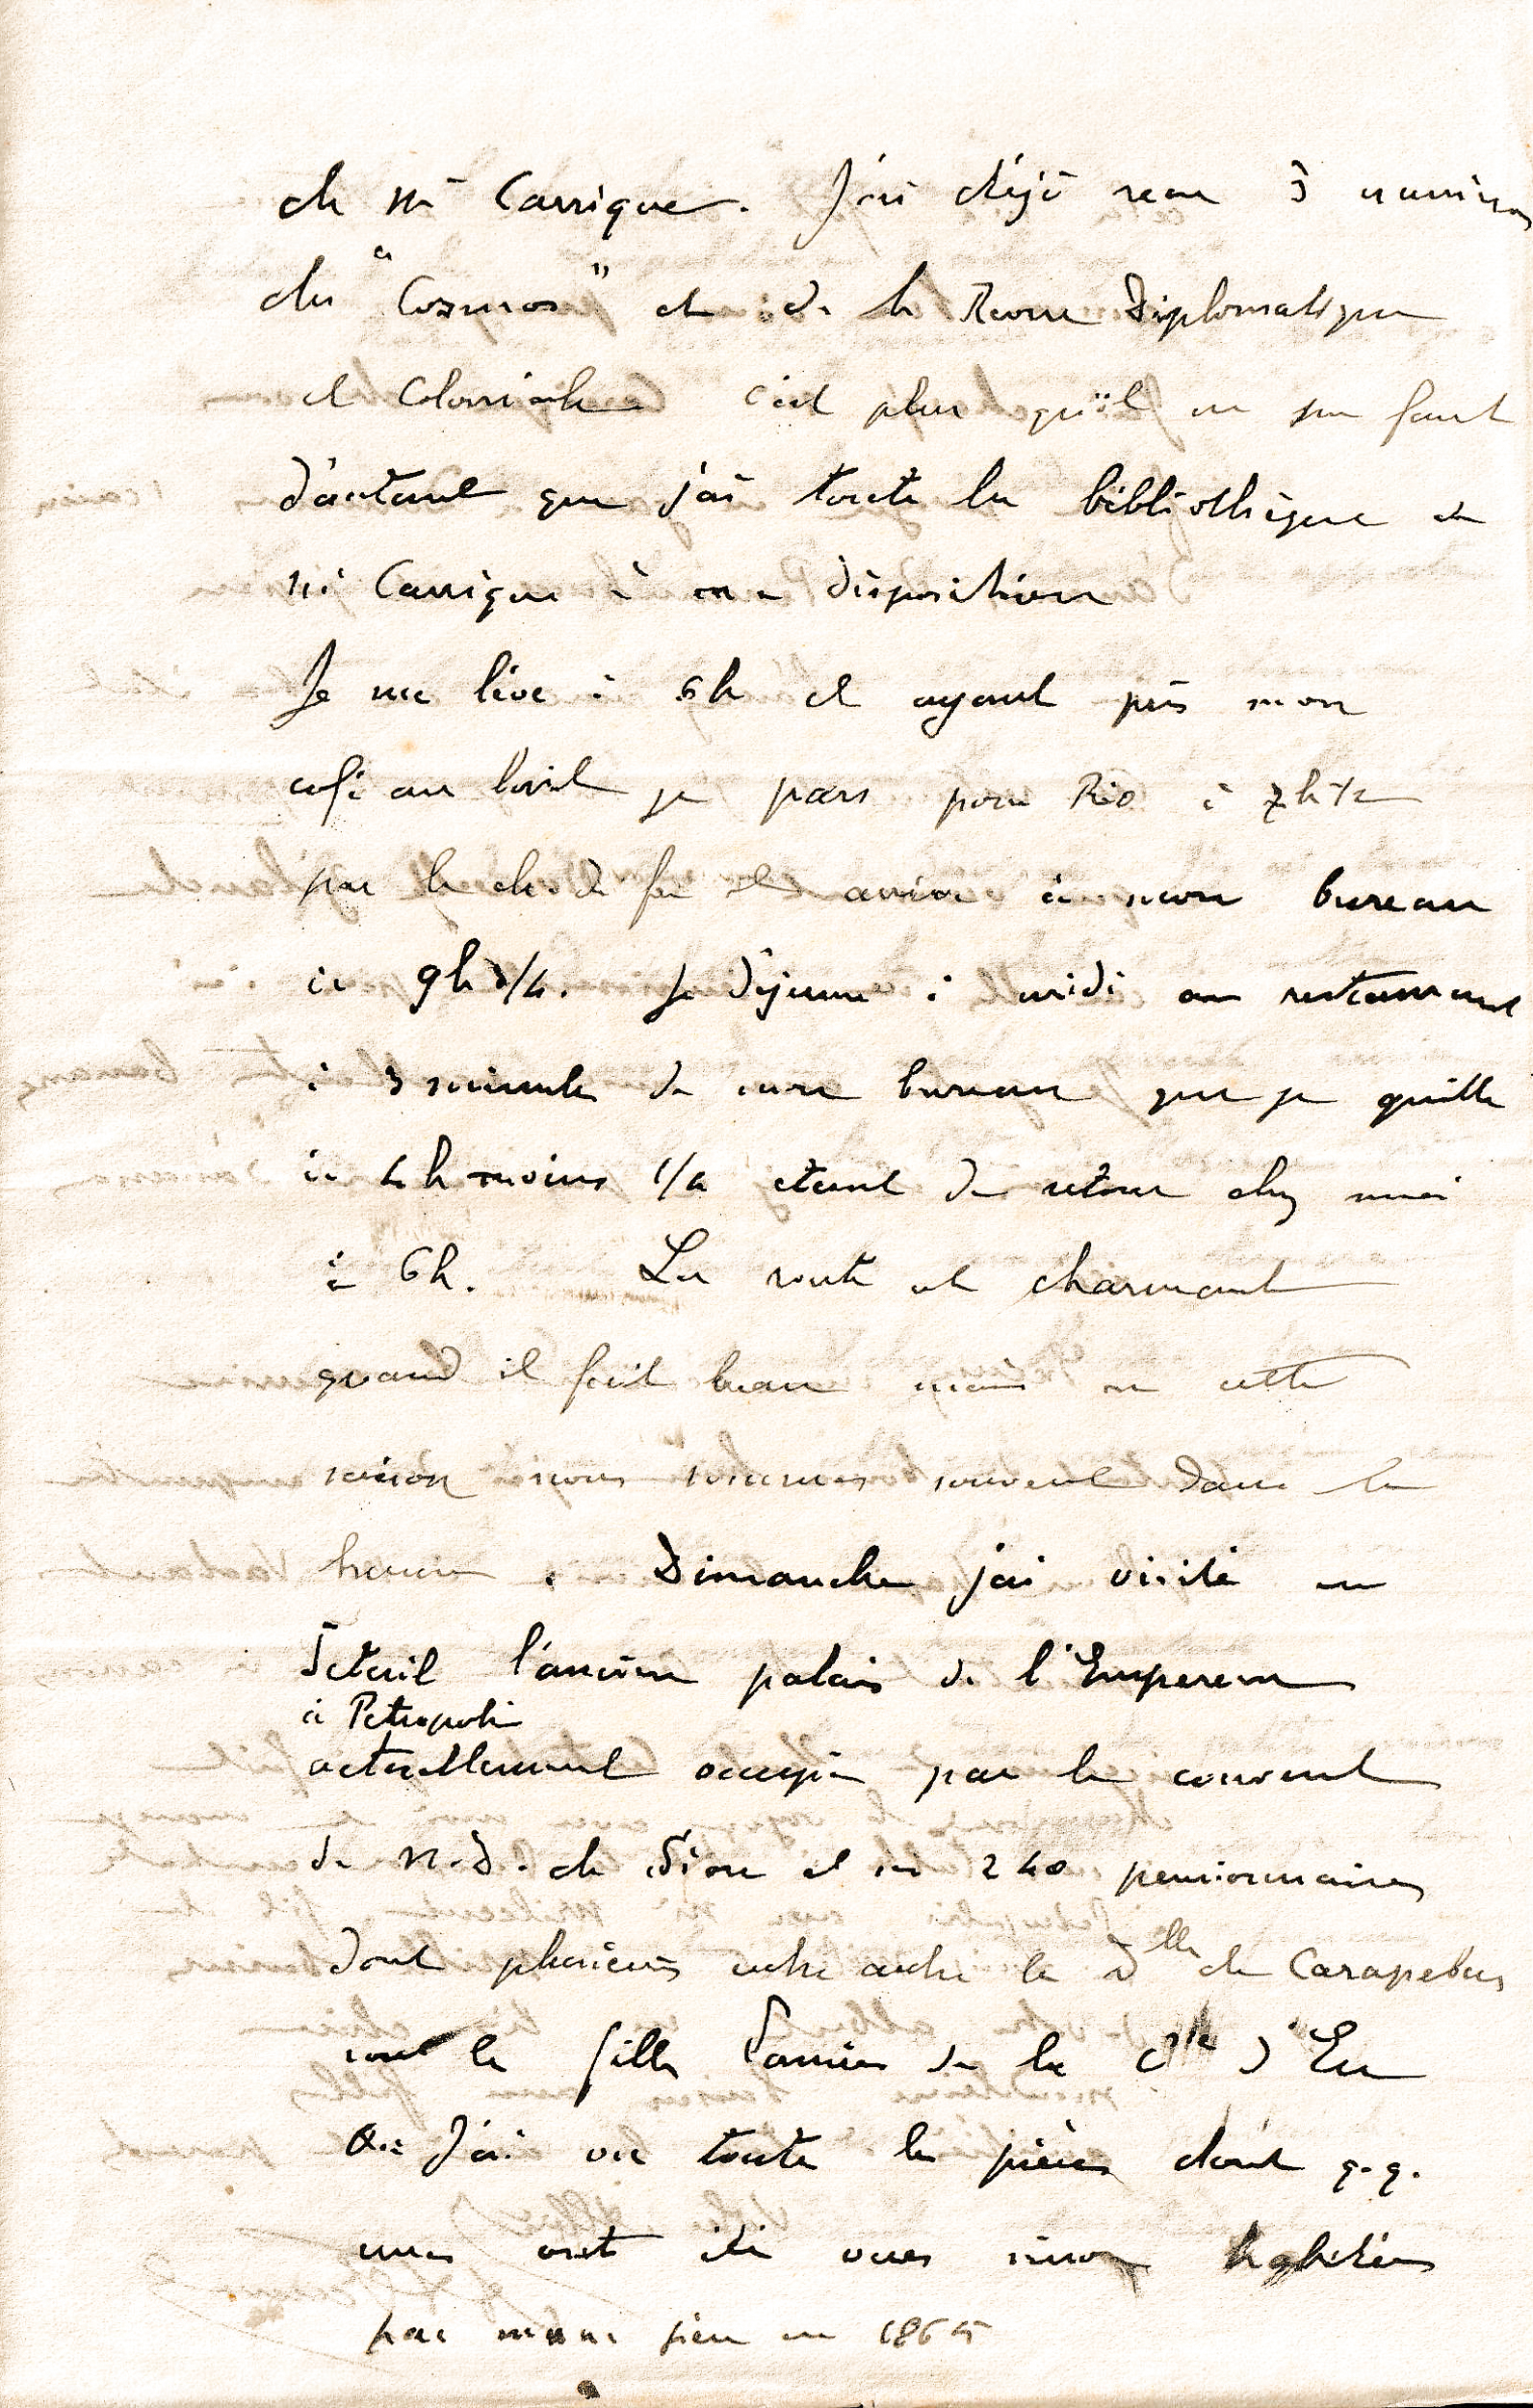 de Mr Carrique. J'ai déjà reçu 3 numéros
du "Cosmos" et de la Revue Diplomatique
et Coloniale c'est plus qu'il ne m'en faut
d'autant que j'ai toute la bibliothèque de
Mr Carrique à ma disposition
Je me lève à 6h et ayant pris mon
café au lait je pars pour Rio à 7h 1/2
par le ch. de fer et arrive à mon bureau
à 9h 3/4. Je déjeune à midi au restaurant
à 3 minutes de mon bureau que je quitte
à 4h moins 1/4 étant de retour chez moi
à 6h. La route est charmante
quand il fait beau mais en cette
saison nous sommes souvent dans la
Dimanche j'ai visité en
détail l'ancien palais de l'Empereur
à Petropolis
actuellement occupé par le couvent
de N.D. de Sion et ses 240 pensionnaires
dont plusieurs entre autre les Dlles de Carapebus
sont les filles d'amies de la Ctesse d'Eu
J'ai vu toutes les pièces dont q.q.
unes ont été vues sinon habitées
par mon père en 1865